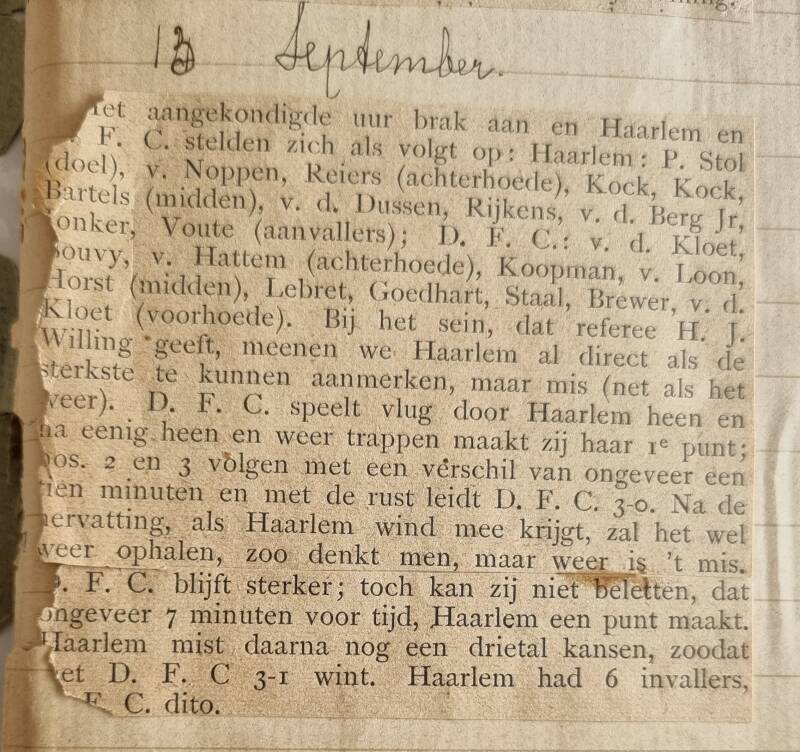 13 September.
et aangekondigde uur brak aan en Haarlem en
F. C. stelden zich als volgt op: Haarlem: P. Stol
(doel), v. Noppen, Reiers (achterhoede), Kock, Kock,
Bartels (midden), v. d. Dussen, Rijkens, v. d. Berg Jr,
onker, Voute (aanvallers); D. F. C.: v. d. Kloet,
ouvy, v. Hattem (achterhoede), Koopman, v. Loon,
Horst (midden), Lebret, Goedhart, Staal, Brewer, v. d.
Kloet (voorhoede). Bij het sein, dat referee H. J.
Willing geeft, meenen we Haarlem al direct als de
sterkste te kunnen aanmerken, maar mis (net als het
weer). D. F. C. speelt vlug door Haarlem heen en
na eenig heen en weer trappen maakt zij haar 1e punt;
os. 2 en 3 volgen met een verschil van ongeveer een
tien minuten en met de rust leidt D. F. C. 3-0. Na de
hervatting, als Haarlem wind mee krijgt, zal het wel
weer ophalen, zoo denkt men, maar weer is 't mis.
. F. C. blijft sterker; toch kan zij niet beletten, dat
ongeveer 7 minuten voor tijd, Haarlem een punt maakt.
Haarlem mist daarna nog een drietal kansen, zoodat
et D. F. C 3-1 wint. Haarlem had 6 invallers,
F. C. dito.